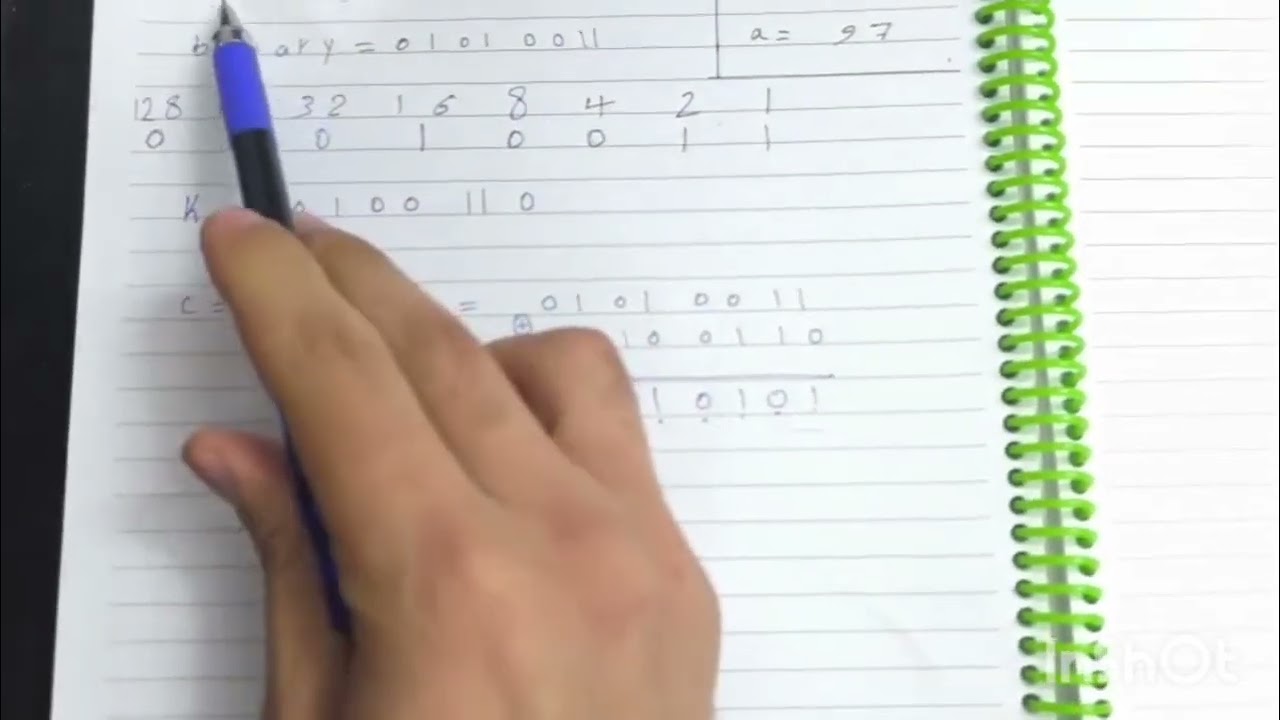 = 0101 0011
a = 97
128 32 16 8 4 2 1
0 0 1 0 0 1 1
K 0 1 0 0 1 1 0
c = = 0 1 0 1 0 0 1 1
⊕ 1 0 0 1 1 0
1 0 1 0 1
InShOt